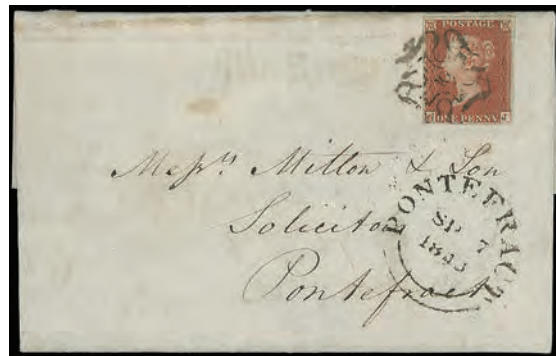 POSTAGE
ONE PENNY
Mess.rs Mitton & Son
Solicitors
Pontefract
PONTEFRACT
SP 7
1843